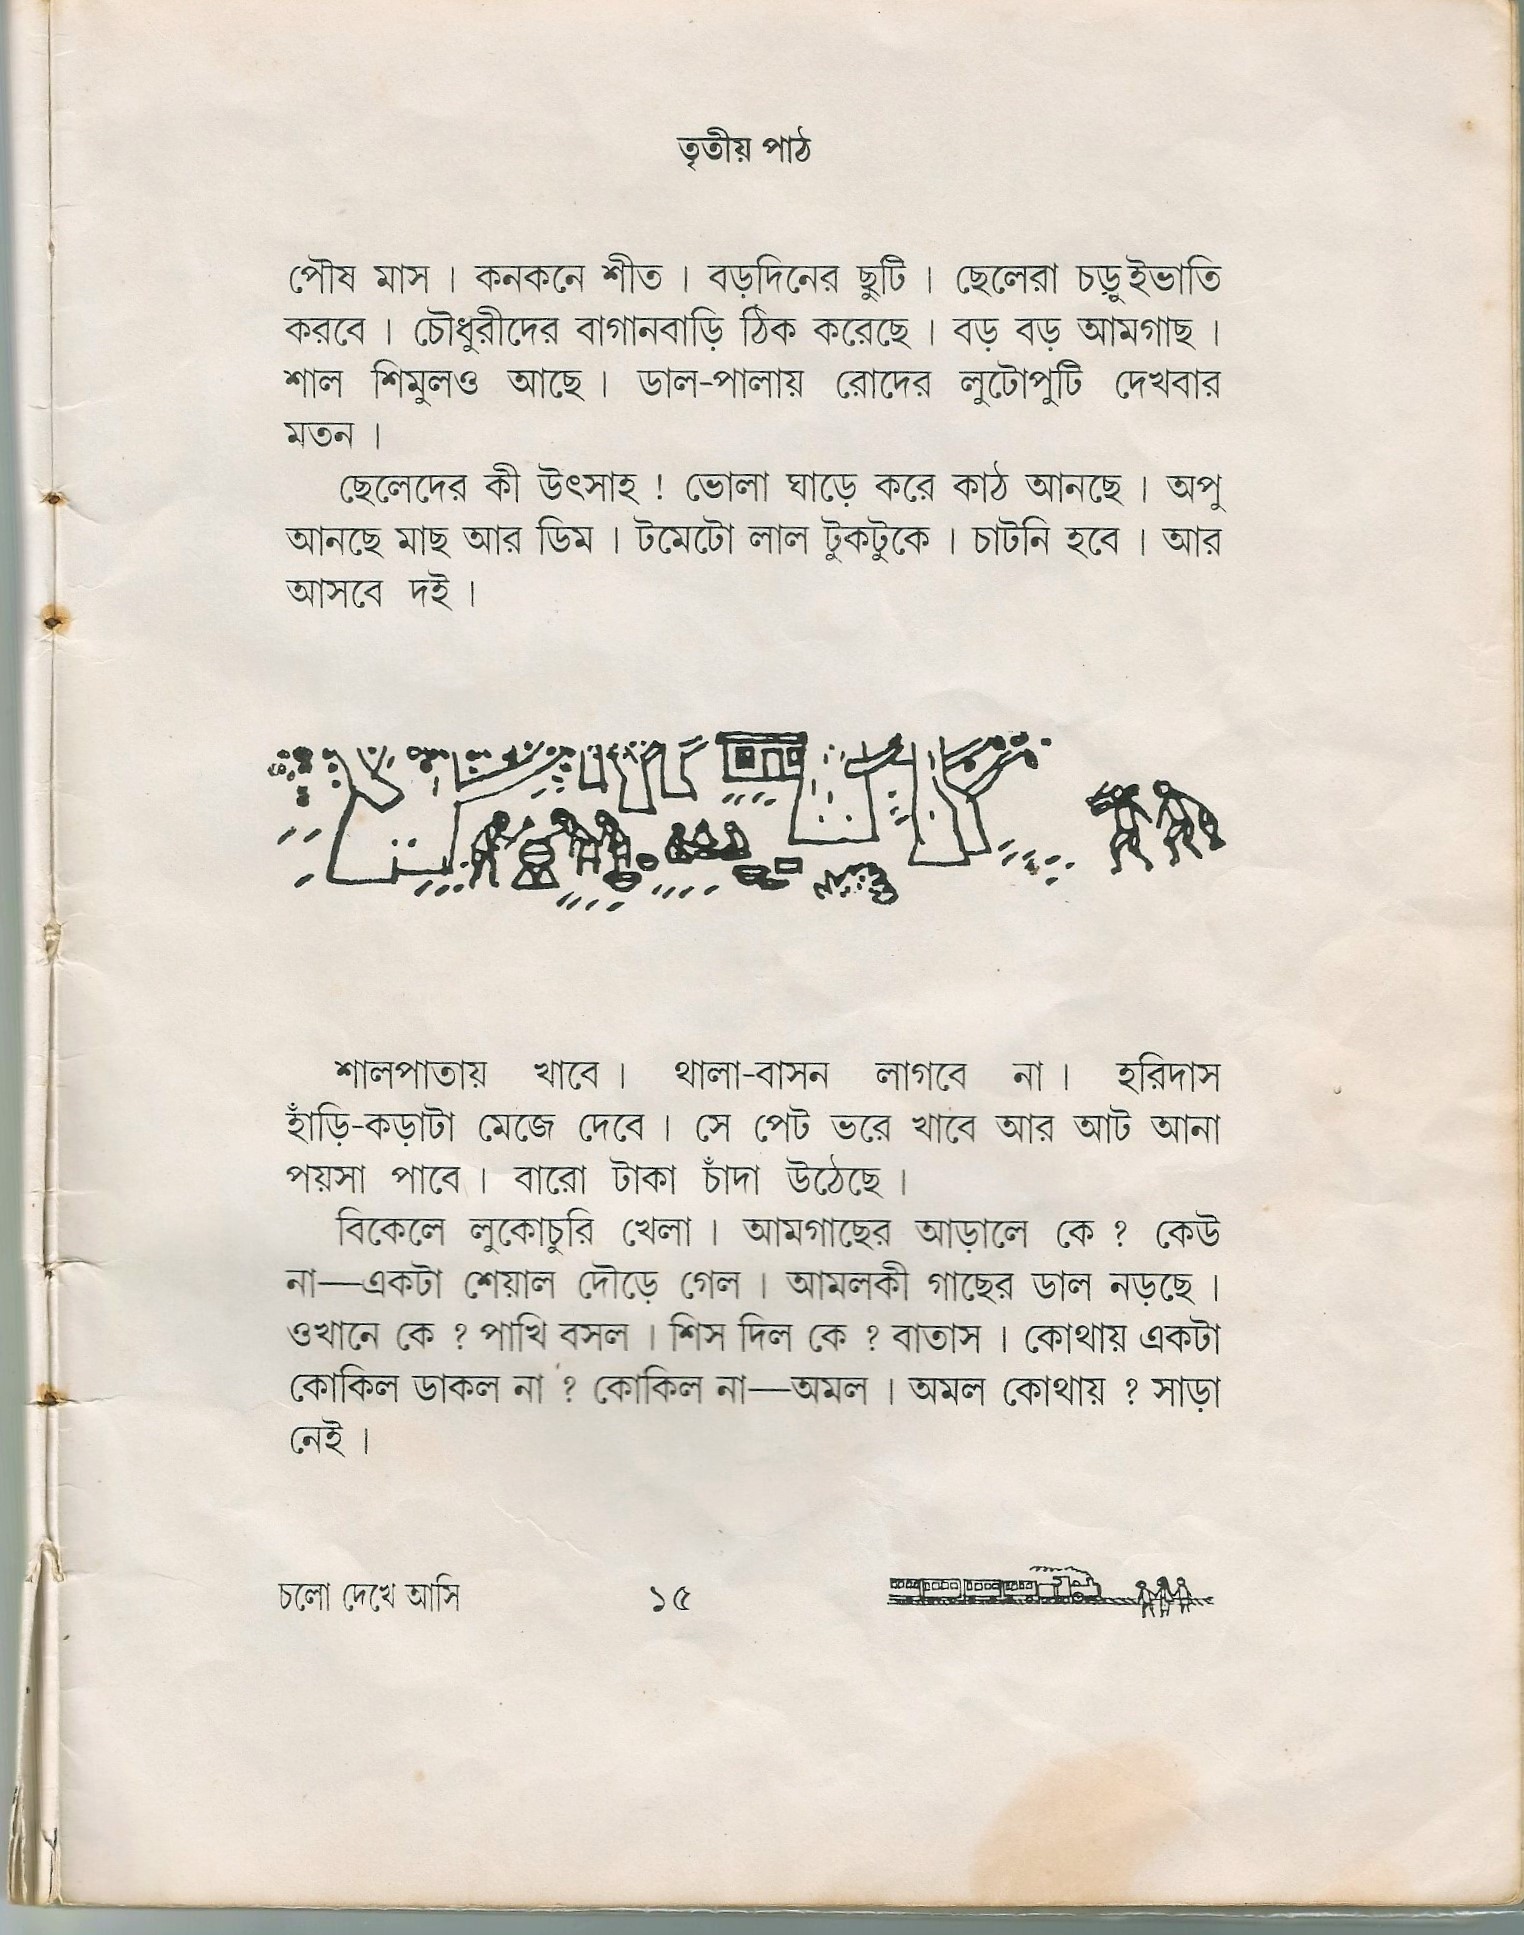 তৃতীয় পাঠ
পৌষ মাস । কনকনে শীত । বড়দিনের ছুটি । ছেলেরা চড়ুইভাতি
করবে । চৌধুরীদের বাগানবাড়ি ঠিক করেছে । বড় বড় আমগাছ ।
শাল শিমুলও আছে । ডাল-পালায় রোদের লুটোপুটি দেখবার
মতন ।
ছেলেদের কী উৎসাহ ! ভোলা ঘাড়ে করে কাঠ আনছে । অপু
আনছে মাছ আর ডিম । টমেটো লাল টুকটুকে । চাটনি হবে । আর
আসবে দই ।
শালপাতায় খাবে । থালা-বাসন লাগবে না । হরিদাস
হাঁড়ি-কড়াটা মেজে দেবে । সে পেট ভরে খাবে আর আট আনা
পয়সা পাবে । বারো টাকা চাঁদা উঠেছে ।
বিকেলে লুকোচুরি খেলা । আমগাছের আড়ালে কে ? কেউ
না—একটা শেয়াল দৌড়ে গেল । আমলকী গাছের ডাল নড়ছে ।
ওখানে কে ? পাখি বসল । শিস দিল কে ? বাতাস । কোথায় একটা
কোকিল ডাকল না ? কোকিল না—অমল । অমল কোথায় ? সাড়া
নেই ।
চলো দেখে আসি ১৫